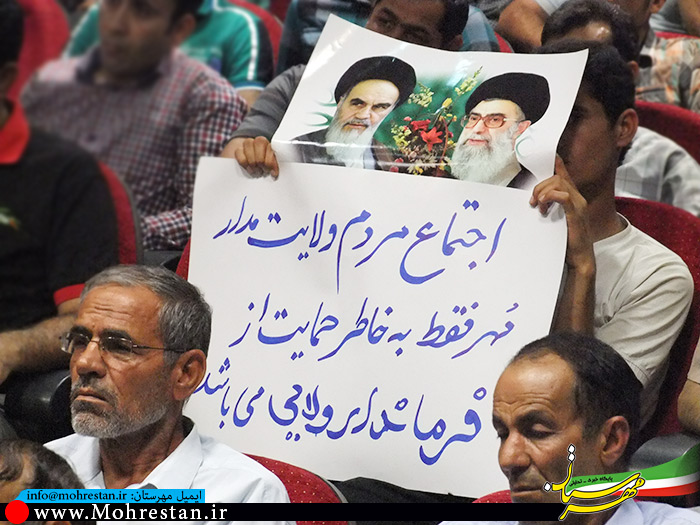 اجتماع مردم ولایت مدار
مُهر فقط به خاطر حمایت از
فرماندار ولایی می باشد
پایگاه خبری - تحلیلی
مهرستان
info@mohrestan.ir ایمیل مهرستان:
www.Mohrestan.ir